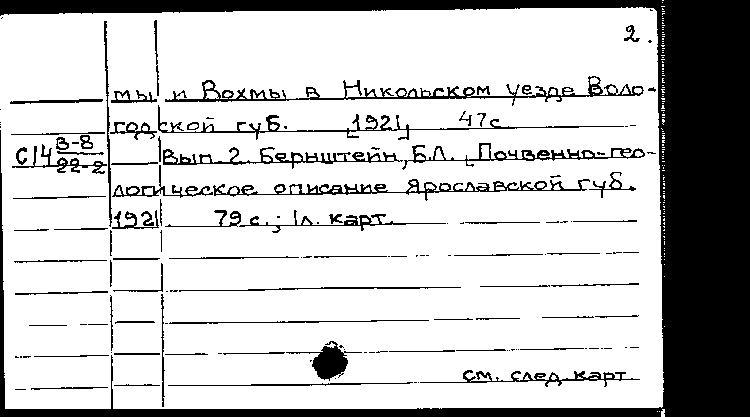 2.
мы и Вохмы в Никольском уезде Воло-
годской губ. [1921] 47с
С14 В-8/22-2 Вып. 2. Бернштейн, Б.Л. Почвенно-гео-
логическое описание Ярославской губ.
1921. 79 с.; 1л. карт.
см. след. карт